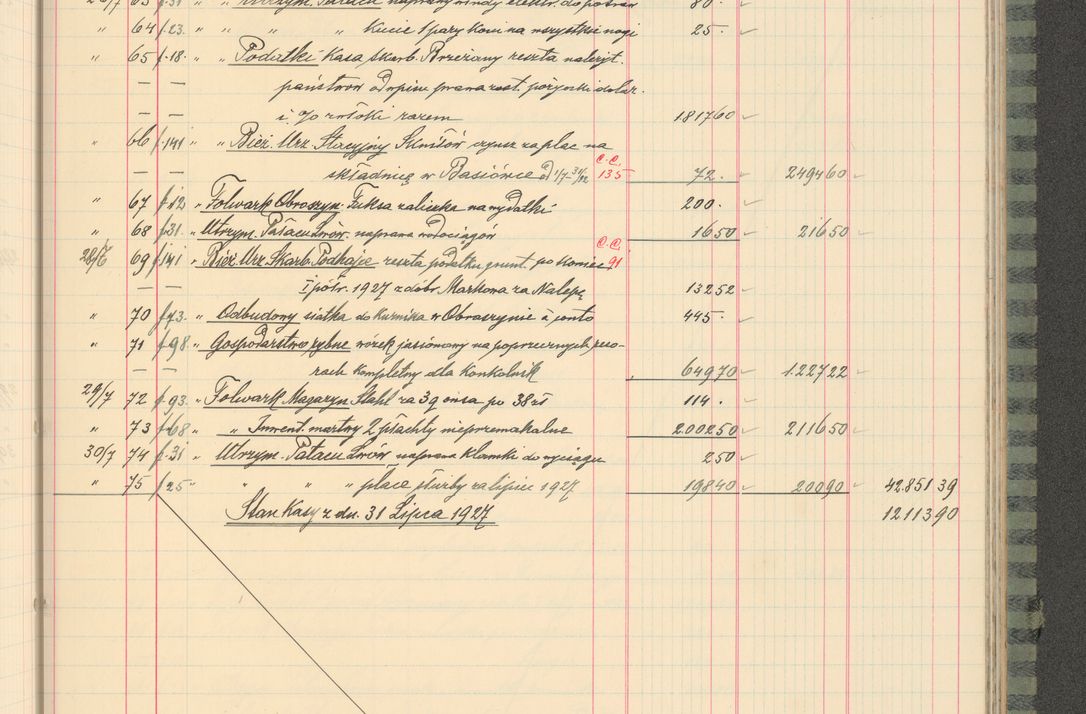 " 64 f.23. " " " " Kucie 1 pary koni na wszystkie nogi 25.
" 65 f.18. " " Podatki Kasa skarb. Brzeżany reszta należyt.
— — państwow od wpisu prawa zast. pożyczki dolar.
— — i % zwłoki razem 181760
" 66 f.141 " " Bież. Urz. Stacyjny Skniłów czynsz za plac na
— — składnię w Basiówce od 1/7 - 31/12 C.C. 135 72. 249460
" 67 f.12 " Folwark Obroszyn Fuksa zaliczka na wydatki 200.
" 68 f.31. " Utrzym. Pałacu Lwów. naprawa wodociągów 1650 21650
28/7 69 f.141 " Bież. Urz. Skarb. Podhajce reszta podatku grunt. po koniec C.C. 91
— — I półr. 1927 z dóbr Markowa za Nalepę 13252
" 70 f.73. " Odbudowy siatka do Kurnika w Obroszynie à conto 445.
" 71 f.98. " Gospodarstwo rybne wózek jasionowy na poprzecznych reso-
— — rach kompletny dla Konkolnik 64970 122722
29/7 72 f.93. " Folwark Magazyn Stahl za 3 q owsa po 38 zł 114.
" 73 f.68 " " Inwent. martwy 2 płachty nieprzemakalne 200250 211650
30/7 74 f.31 " Utrzym. Pałacu Lwów naprawa klamki do wyciągu 250
" 75 f.25 " " " " płace służby za lipiec 1927 19840 20090 42.851 39
Stan Kasy z dn. 31 Lipca 1927 1211390